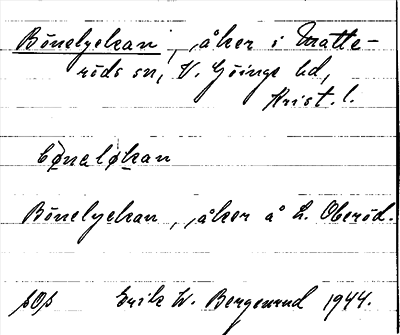 Bönelyckan, åker i Matte-
röds sn, V. Göinge hd,
Krist. l.
bønaløkan
Bönelyckan, åker å L. Oberöd.
sOs Erik W. Bergenrud 1944.